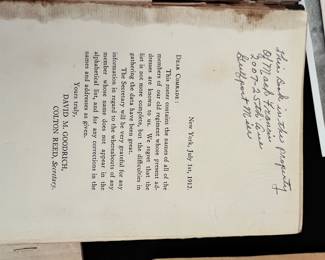 This Book is the property
Of Mack Francis
2007-25th Ave
Gulfport Miss
New York, July 1st, 1912.
DEAR COMRADE:
This roster contains the names of all of the
members of our old regiment whose present ad-
dresses are known to us. We regret that the
list is not more complete, but the difficulties in
gathering the data have been great.
The Secretary will be very grateful for any
information in regard to the whereabouts of any
member whose name does not appear in the
alphabetical list, and for any corrections in the
names and addresses as given.
Yours truly,
DAVID M. GOODRICH,
COLTON REED, Secretary.